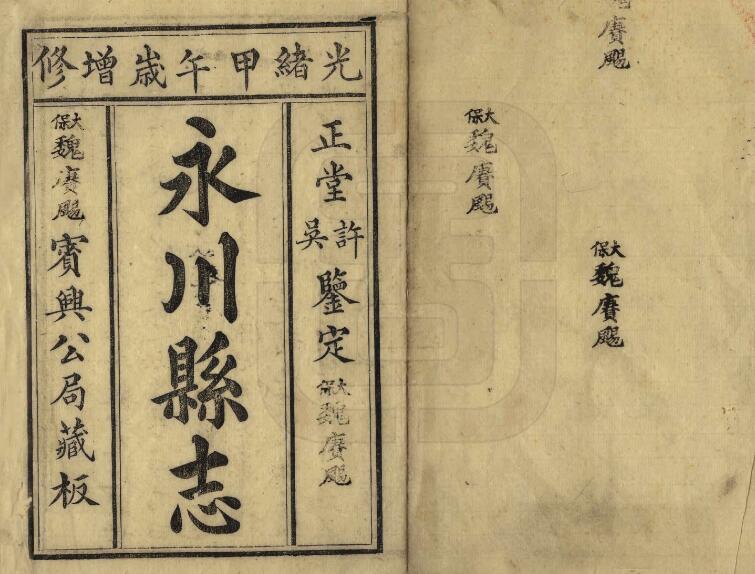 光緒甲午歲增修
正堂許吳鑒定
大保魏賡颺
永川縣志
大保魏賡颺
賓興公局藏板
大保魏賡颺
大保魏賡颺
賡颺